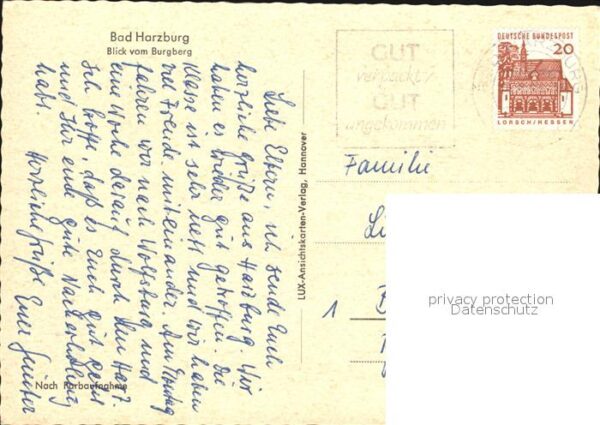 Bad Harzburg
Blick vom Burgberg
Liebe Eltern, ich sende Euch
herzliche Grüße aus Harzburg. Wir
haben es wieder gut getroffen. Die
Klasse ist sehr nett und wir haben
viel Freude miteinander. Am
fahren wir nach Wolfsburg und
eine Woche darauf durch den Harz.
Ich hoffe, daß es Euch gut geht
und Ihr eine gute
habt. Herzliche Grüße Eure
Nach Farbaufnahme
LUX-Ansichtskarten-Verlag, Hannover
GUT
verpackt
GUT
angekommen
DEUTSCHE BUNDESPOST
20
LORSCH/HESSEN
Familie
1
privacy protection
Datenschutz